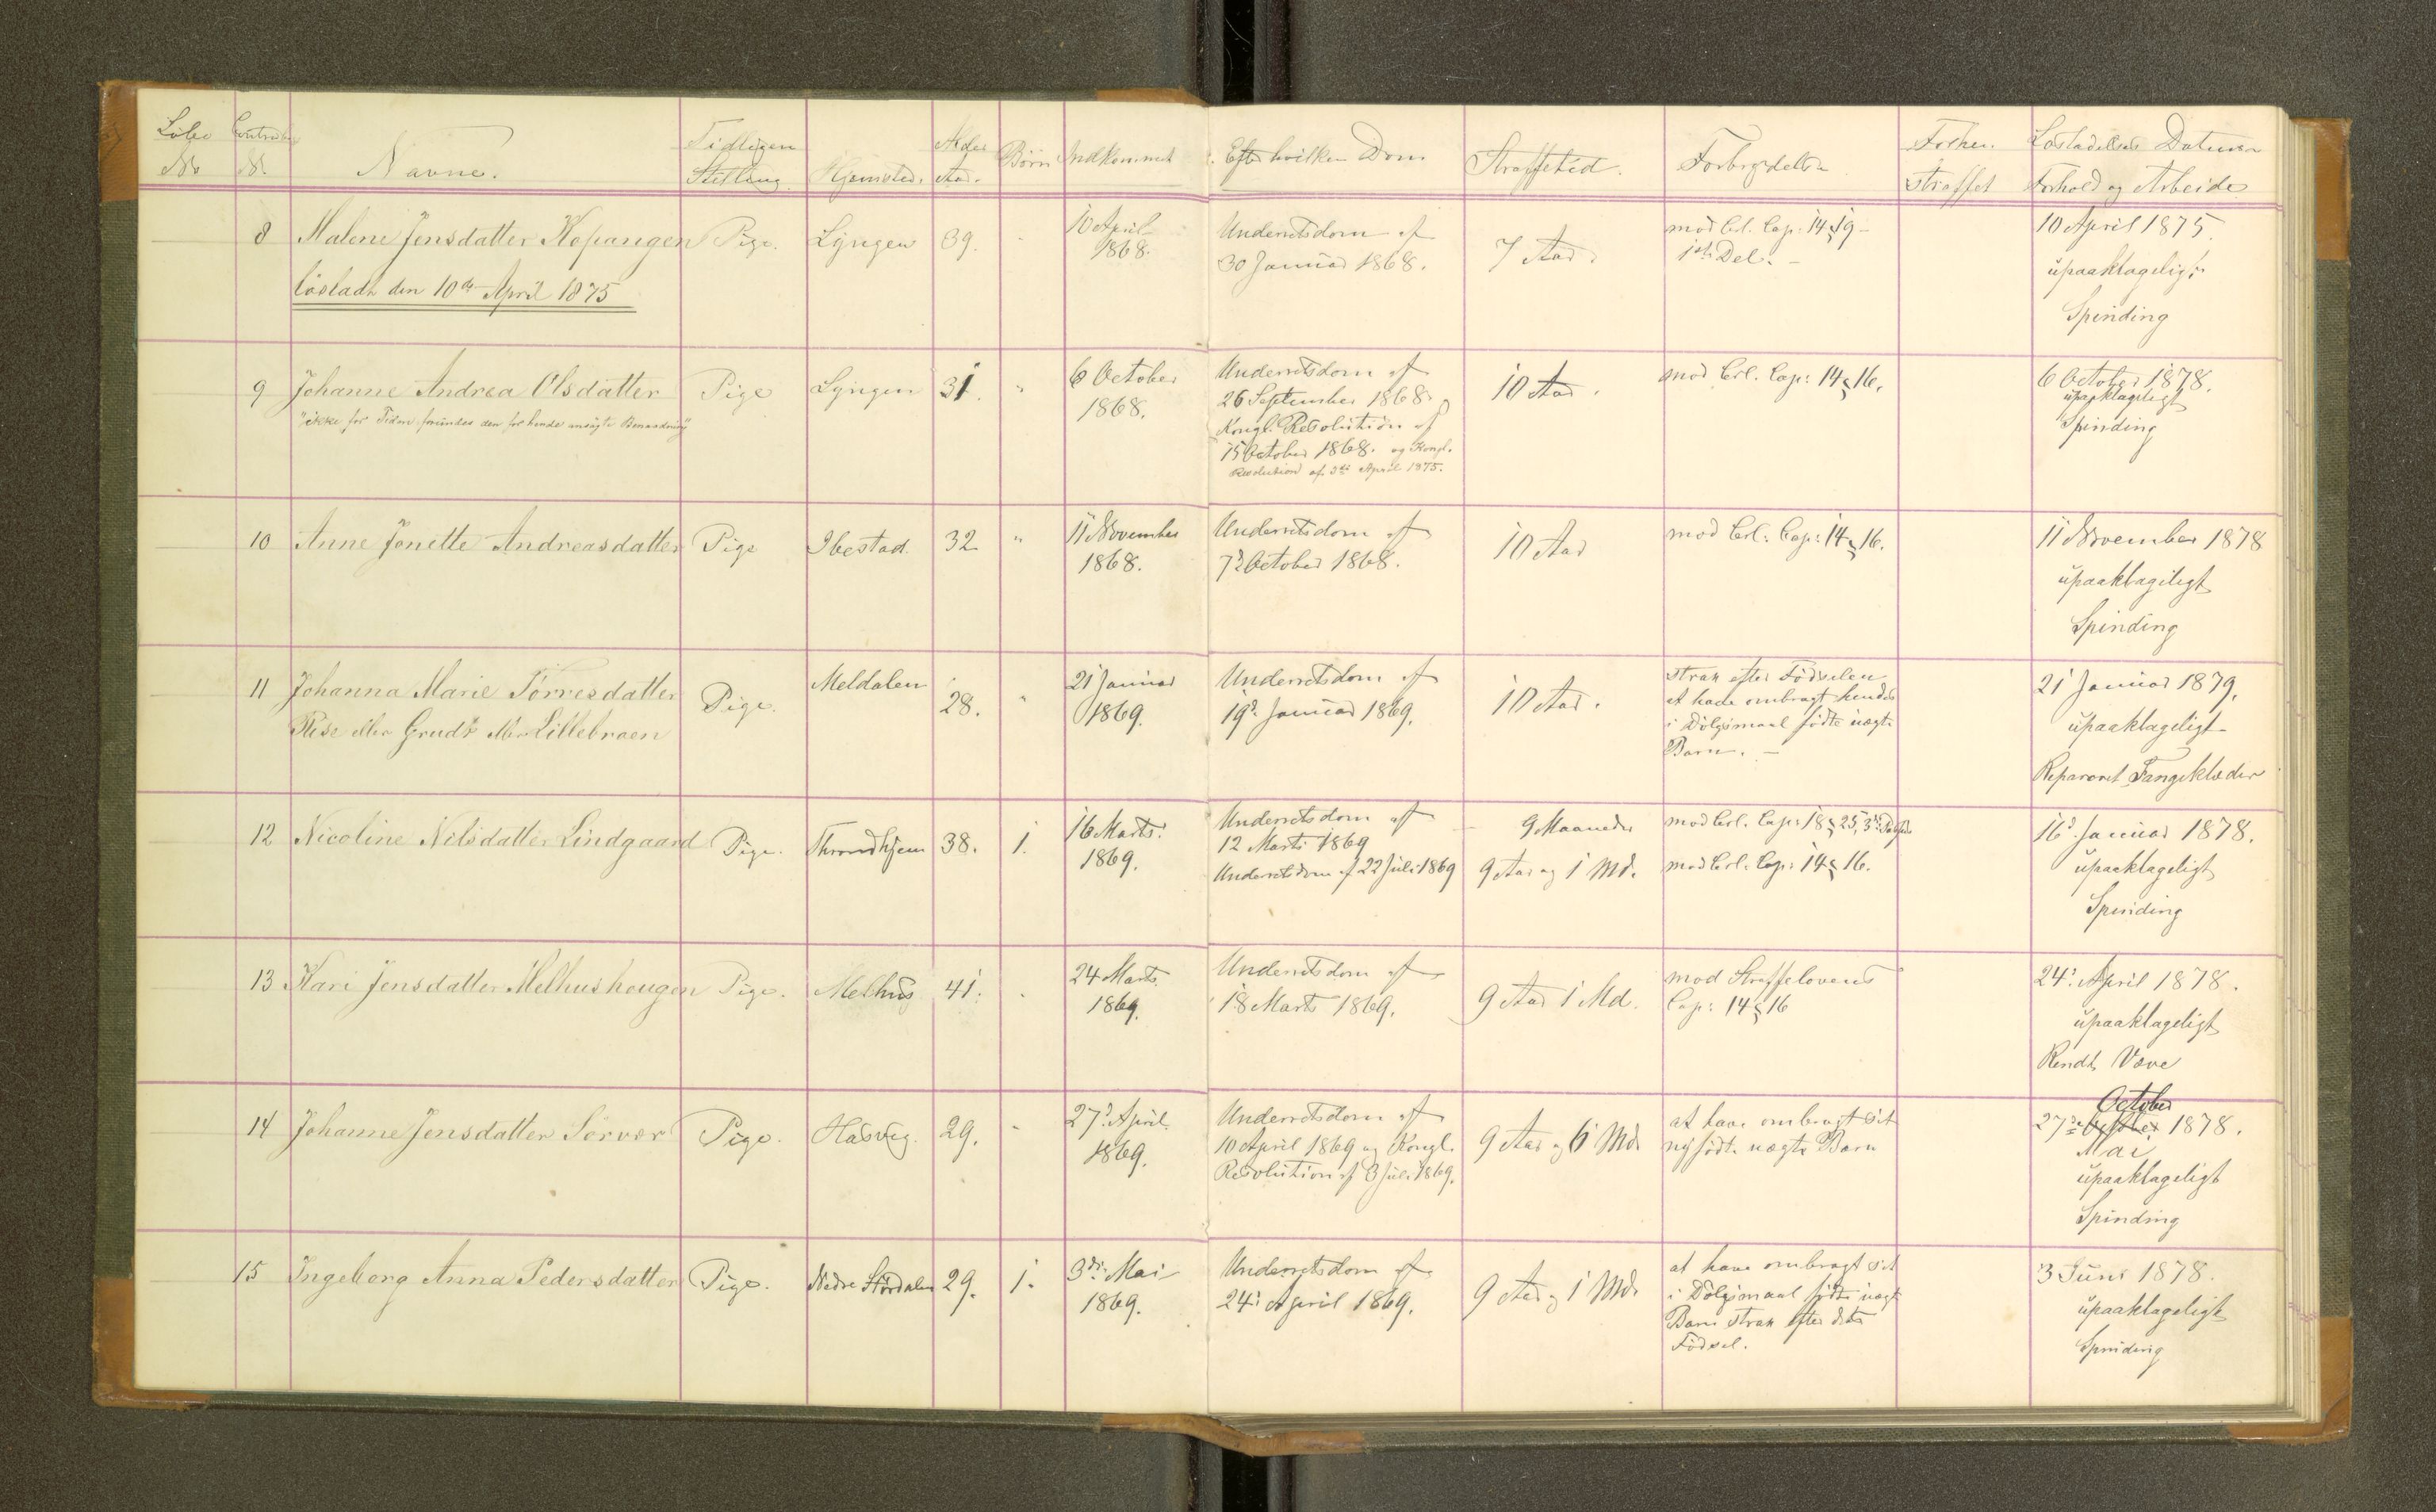 Løbe No Controlle No. Navne. Tidligere Stilling. Hjemsted. Alder Aar. Børn Indkommet Efter hvilken Dom Straffetid. Forbrydelse Forhen straffet Løsladelses Datum Forhold og Arbeide
8 Malene Jensdatter Kopangen Pige. Lyngen 39. 10 April 1868. Underretsdom af 30 Januar 1868. 7 Aar. mod Crl. Cap: 14 § 19 - 1ste Del. - 10 April 1875.
løsladt den 10de April 1875
upaaklageligt
Spinding
9 Johanne Andrea Olsdatter Pige Lyngen 31. " 6 October 1868. Underretsdom af 10 Aar. mod Crl. Cap: 14 § 16. 6 October 1878.
"ikke for Tiden forundes den for hende ansøgte Benaadning"
26 September 1868 og
Kongl. Resolution af
15 October 1868. og Kongl.
Resolution af 3di April 1875.
upaaklageligt
Spinding
10 Anne Jonette Andreasdatter Pige Ibestad. 32 " 11 November 1868. Underretsdom af 7de October 1868. 10 Aar mod Crl: Cap: 14 § 16. 11 November 1878
upaaklageligt
Spinding
11 Johanna Marie Torresdatter Pige. Meldalen 28. " 21 Januar 1869. Underretsdom af 19de Januar 1869. 10 Aar. strax efter Fødselen 21 Januar 1879.
Rise eller Grudt eller Lillebroen
at have ombragt hendes
i Dølgsmaal fødte uægte
Barn. -
upaaklageligt
Repareret Fangeklæder
12 Nicoline Nilsdatter Lindgaard Pige. Throndhjem 38. 1. 16 Marts. 1869. Underretsdom af 12 Marts 1869 9 Maaneder mod Crl. Cap: 18 § 25, 3de 16de Januar 1878.
Underretsdom af 22 Juli 1869 9 Aar og 1 Md. mod Crl. Cap: 14 § 16.
upaaklageligt
Spinding
13 Kari Jensdatter Melhushougen Pige. Melhus 41. 24 Marts. 1869. Underretsdom af 18 Marts 1869. 9 Aar 1 Md. mod Straffelovens Cap: 14 § 16 24. April 1878.
upaaklageligt
Rendt Væve
14 Johanne Jensdatter Sørvær Pige. Hasvig. 29. " 27de April 1869. Underretsdom af 9 Aar og 6 Md. at have ombragt sit 27de October 1878.
10 April 1869 og Kongl.
Resolution af 3 Juli 1869.
nyfødte uægte Barn
Mai
upaaklageligt
Spinding
15 Ingeborg Anna Pedersdatter Pige. Nedre Stördalen 29. 1. 3die Mai 1869. Underretsdom af 24. April 1869. 9 Aar og 1 Md. at have ombragt sit 3 Juni 1878.
i Dølgsmaal fødte uægte
Barn strax efter dets
Fødsel.
upaaklageligt
Spinding